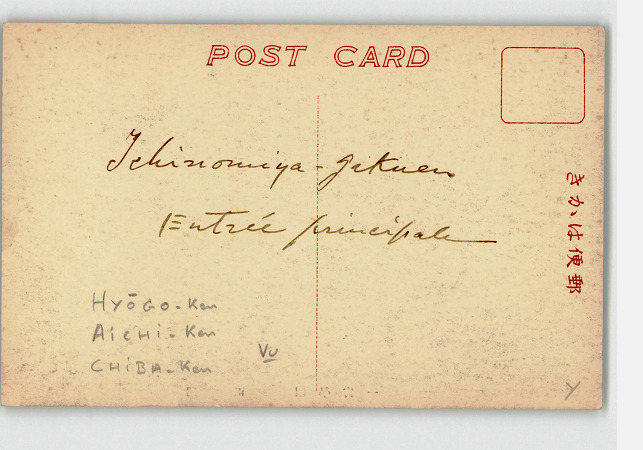 POST CARD
Ichinomiya-Gakuen
Entrée principale
きかは便郵
HYŌGO-Ken
AICHI-Ken
CHIBA-Ken
Vu
Y